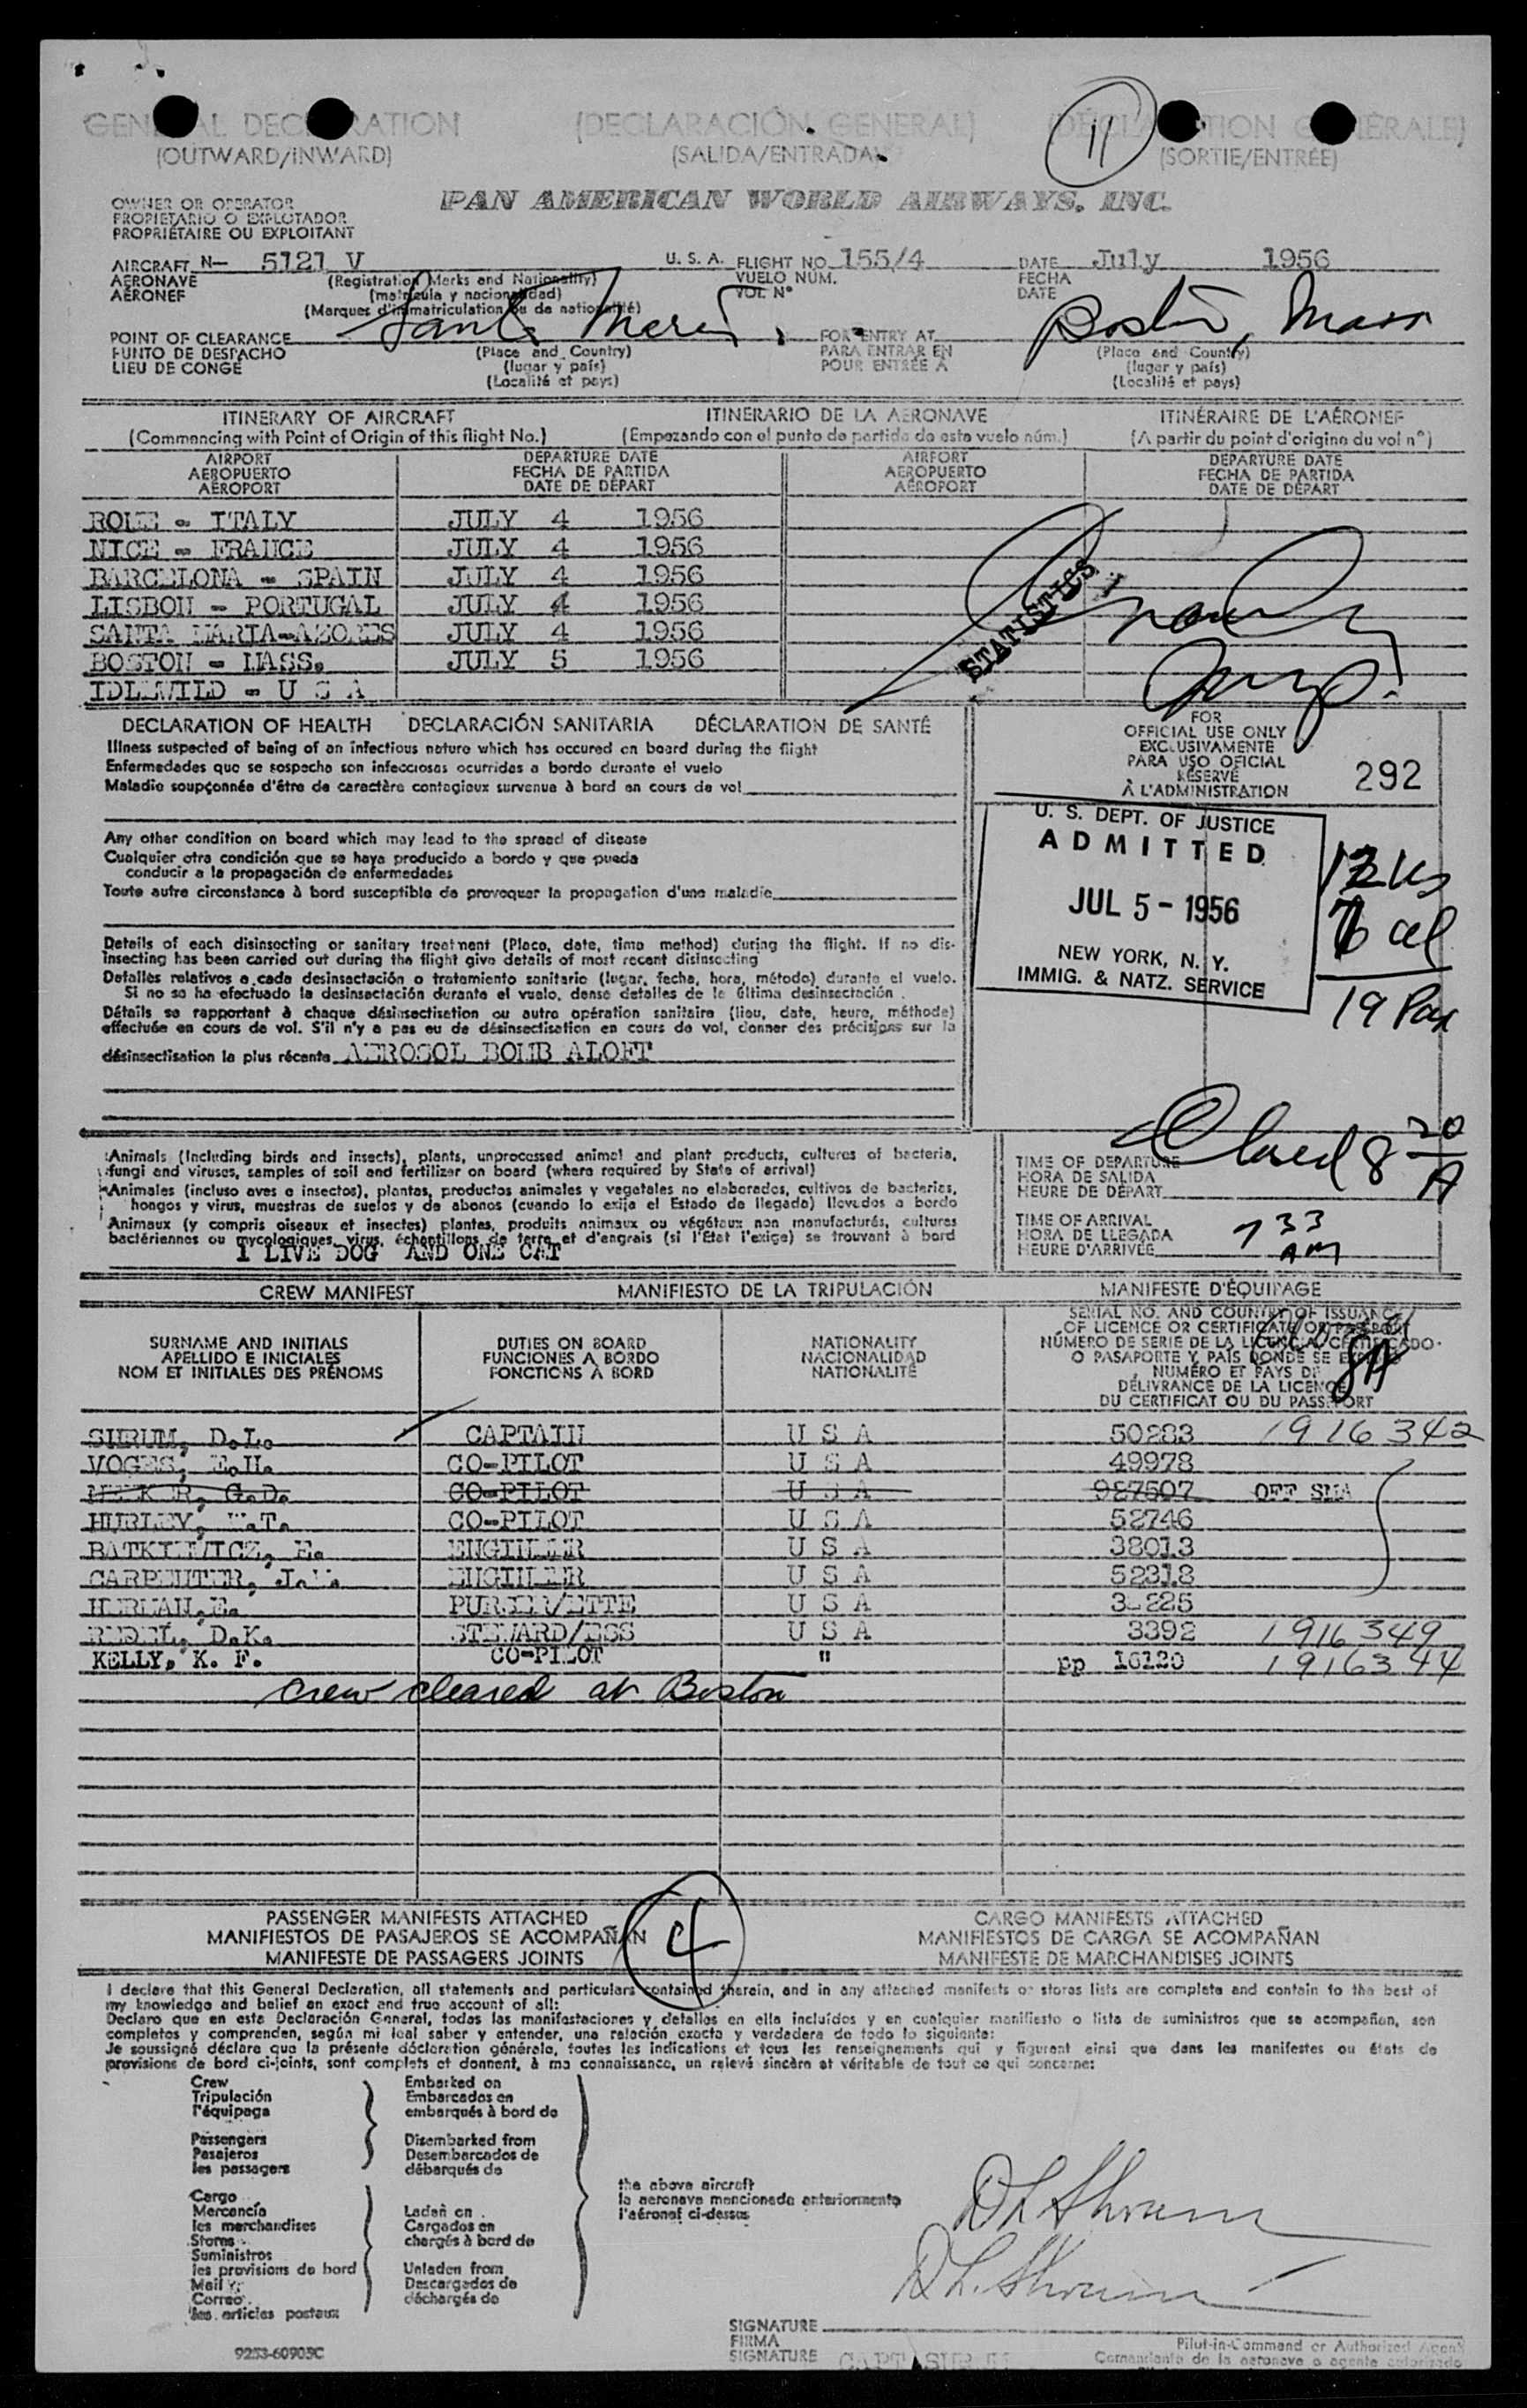 GENERAL DECLARATION (DECLARACIÓN GENERAL) (DÉCLARATION GÉNÉRALE)
(OUTWARD/INWARD) (SALIDA/ENTRADA) (SORTIE/ENTRÉE)
11
OWNER OR OPERATOR
PROPIETARIO O EXPLOTADOR
PROPRIÉTAIRE OU EXPLOITANT
PAN AMERICAN WORLD AIRWAYS, INC.
AIRCRAFT N- 5121 V U. S. A. FLIGHT NO. 155/4 DATE July 1956
AERONAVE (Registration Marks and Nationality) VUELO NÚM. FECHA
AÉRONEF (matrícula y nacionalidad) VOL N° DATE
(Marques d'immatriculation ou de nationalité)
POINT OF CLEARANCE Santa Maria FOR ENTRY AT Boston, Mass
PUNTO DE DESPACHO (Place and Country) PARA ENTRAR EN (Place and Country)
LIEU DE CONGÉ (lugar y país) POUR ENTRÉE À (lugar y país)
(Localité et pays) (Localité et pays)
ITINERARY OF AIRCRAFT ITINERARIO DE LA AERONAVE ITINÉRAIRE DE L'AÉRONEF
(Commencing with Point of Origin of this flight No.) (Empezando con el punto de partida de este vuelo núm.) (A partir du point d'origine du vol n°)
AIRPORT DEPARTURE DATE AIRPORT DEPARTURE DATE
AEROPUERTO FECHA DE PARTIDA AEROPUERTO FECHA DE PARTIDA
AÉROPORT DATE DE DÉPART AÉROPORT DATE DE DÉPART
ROME - ITALY JULY 4 1956
NICE - FRANCE JULY 4 1956
BARCELONA - SPAIN JULY 4 1956
LISBON - PORTUGAL JULY 4 1956
SANTA MARIA-AZORES JULY 4 1956
BOSTON - MASS. JULY 5 1956
IDLEWILD - U S A
STATISTICS
DECLARATION OF HEALTH DECLARACIÓN SANITARIA DÉCLARATION DE SANTÉ
Illness suspected of being of an infectious nature which has occured on board during the flight
Enfermedades que se sospecha son infecciosas ocurridas a bordo durante el vuelo
Maladie soupçonnée d'être de caractère contagieux survenue à bord en cours de vol
FOR
OFFICIAL USE ONLY
EXCLUSIVAMENTE
PARA USO OFICIAL
RÉSERVÉ
À L'ADMINISTRATION
292
U. S. DEPT. OF JUSTICE
ADMITTED
JUL 5 - 1956
NEW YORK, N. Y.
IMMIG. & NATZ. SERVICE
19 Pax
Any other condition on board which may lead to the spread of disease
Cualquier otra condición que se haya producido a bordo y que pueda
conducir a la propagación de enfermedades
Toute autre circonstance à bord susceptible de provoquer la propagation d'une maladie
Details of each disinsecting or sanitary treatment (Place, date, time method) during the flight. If no dis-
insecting has been carried out during the flight give details of most recent disinsecting
Detalles relativos a cada desinsectación o tratamiento sanitario (lugar, fecha, hora, método) durante el vuelo.
Si no se ha efectuado la desinsectación durante el vuelo, dense detalles de la última desinsectación.
Détails se rapportant à chaque désinsectisation ou autre opération sanitaire (lieu, date, heure, méthode)
effectuée en cours de vol. S'il n'y a pas eu de désinsectisation en cours de vol, donner des précisions sur la
désinsectisation la plus récente AEROSOL BOMB ALOFT
Animals (Including birds and insects), plants, unprocessed animal and plant products, cultures of bacteria,
fungi and viruses, samples of soil and fertilizer on board (where required by State of arrival)
Animales (incluso aves e insectos), plantas, productos animales y vegetales no elaborados, cultivos de bacterias,
hongos y virus, muestras de suelos y de abonos (cuando lo exija el Estado de llegada) llevados a bordo
Animaux (y compris oiseaux et insectes) plantes, produits animaux ou végétaux non manufacturés, cultures
bactériennes ou mycologiques, virus, échantillons de terre et d'engrais (si l'État l'exige) se trouvant à bord
1 LIVE DOG AND ONE CAT
Closed 8 20 A
TIME OF DEPARTURE
HORA DE SALIDA
HEURE DE DÉPART
TIME OF ARRIVAL
HORA DE LLEGADA 7 33
HEURE D'ARRIVÉE AM
CREW MANIFEST MANIFIESTO DE LA TRIPULACIÓN MANIFESTE D'ÉQUIPAGE
SURNAME AND INITIALS DUTIES ON BOARD NATIONALITY
APELLIDO E INICIALES FUNCIONES A BORDO NACIONALIDAD
NOM ET INITIALES DES PRÉNOMS FONCTIONS À BORD NATIONALITÉ
SERIAL NO. AND COUNTRY OF ISSUANCE
OF LICENCE OR CERTIFICATE OR PASSPORT
NÚMERO DE SERIE DE LA LICENCIA/CERTIFICADO
O PASAPORTE Y PAÍS DONDE SE EXPIDIÓ
NUMÉRO ET PAYS DE
DÉLIVRANCE DE LA LICENCE
DU CERTIFICAT OU DU PASSEPORT
8A
SHRUM, D.L. CAPTAIN U S A 50283 1916342
VOGES, E.H. CO-PILOT U S A 49978
CO-PILOT U S A 927507 OFF SMA
HURLEY, CO-PILOT U S A 52746
BATKIEWICZ, E. ENGINEER U S A 38013
CARPENTER, ENGINEER U S A 52318
HERMAN, E. PURSER/ETTE U S A
D.K. STEWARD/ESS U S A 3392 1916349
KELLY, K. F. CO-PILOT " pp 16120 1916344
Crew cleared at Boston
PASSENGER MANIFESTS ATTACHED CARGO MANIFESTS ATTACHED
MANIFIESTOS DE PASAJEROS SE ACOMPAÑAN 4 MANIFIESTOS DE CARGA SE ACOMPAÑAN
MANIFESTE DE PASSAGERS JOINTS MANIFESTE DE MARCHANDISES JOINTS
I declare that this General Declaration, all statements and particulars contained therein, and in any attached manifests or stores lists are complete and contain to the best of
my knowledge and belief an exact and true account of all:
Declaro que en esta Declaración General, todas las manifestaciones y detalles en ella incluídos y en cualquier manifiesto o lista de suministros que se acompañan, son
completos y comprenden, según mi leal saber y entender, una relación exacta y verdadera de todo lo siguiente:
Je soussigné déclare que la présente déclaration générale, toutes les indications et tous les renseignements qui y figurent ainsi que dans les manifestes ou états de
provisions de bord ci-joints, sont complets et donnent, à ma connaissance, un relevé sincère et véritable de tout ce qui concerne:
Crew Embarked on
Tripulación Embarcados en
l'équipage embarqués à bord de
Passengers Disembarked from
Pasajeros Desembarcados de
les passagers débarqués de
the above aircraft
la aeronave mencionada anteriormente
l'aéronef ci-dessus
Cargo
Mercancía Laden on
les marchandises Cargados en
Stores chargés à bord de
Suministros
les provisions de bord Unladen from
Mail Descargados de
Correo déchargés de
les articles postaux
DL Shrum
D.L. Shrum
SIGNATURE
FIRMA
SIGNATURE CAPT SHRUM
Pilot-in-Command or Authorized Agent
Comandante de la aeronave o agente autorizado
9253-60905C